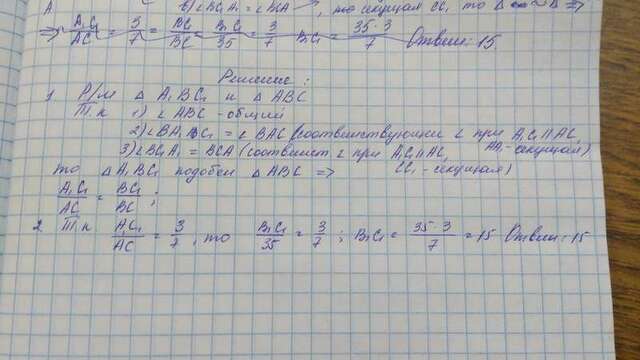 Δ ⇒
⇒ A₁C₁/AC = 3/7 = BC₁/BC = B₁C₁/35 = 3/7 B₁C₁ = 35·3/7 Ответ: 15.
Решение:
1 Р/м Δ A₁BC₁ и Δ ABC
Т.к 1) ∠ ABC - общий
2) ∠BA₁C₁ = ∠ BAC (соответствующих ∠ при A₁C₁ || AC, AA₁ - секущая)
3) ∠BC₁A₁ = BCA (соответст. ∠ при A₁C₁ || AC, CC₁ - секущая)
то Δ A₁BC₁ подобен Δ ABC ⇒
A₁C₁/AC = BC₁/BC;
2. Т.к A₁C₁/AC = 3/7, то B₁C₁/35 = 3/7; B₁C₁ = 35·3/7 = 15 Ответ: 15